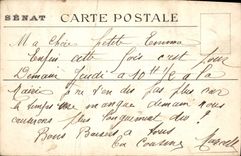 SÉNAT
CARTE POSTALE
Ma Chère petite Emma
Enfin cette fois c'est pour
Demain Jeudi a 10 h 1/2 a la
Mairie je n'en dis pas plus car
le temps me manque demain nous
causerons plus longuement
Bons Baisers a tous
ta Cousine Marcelle